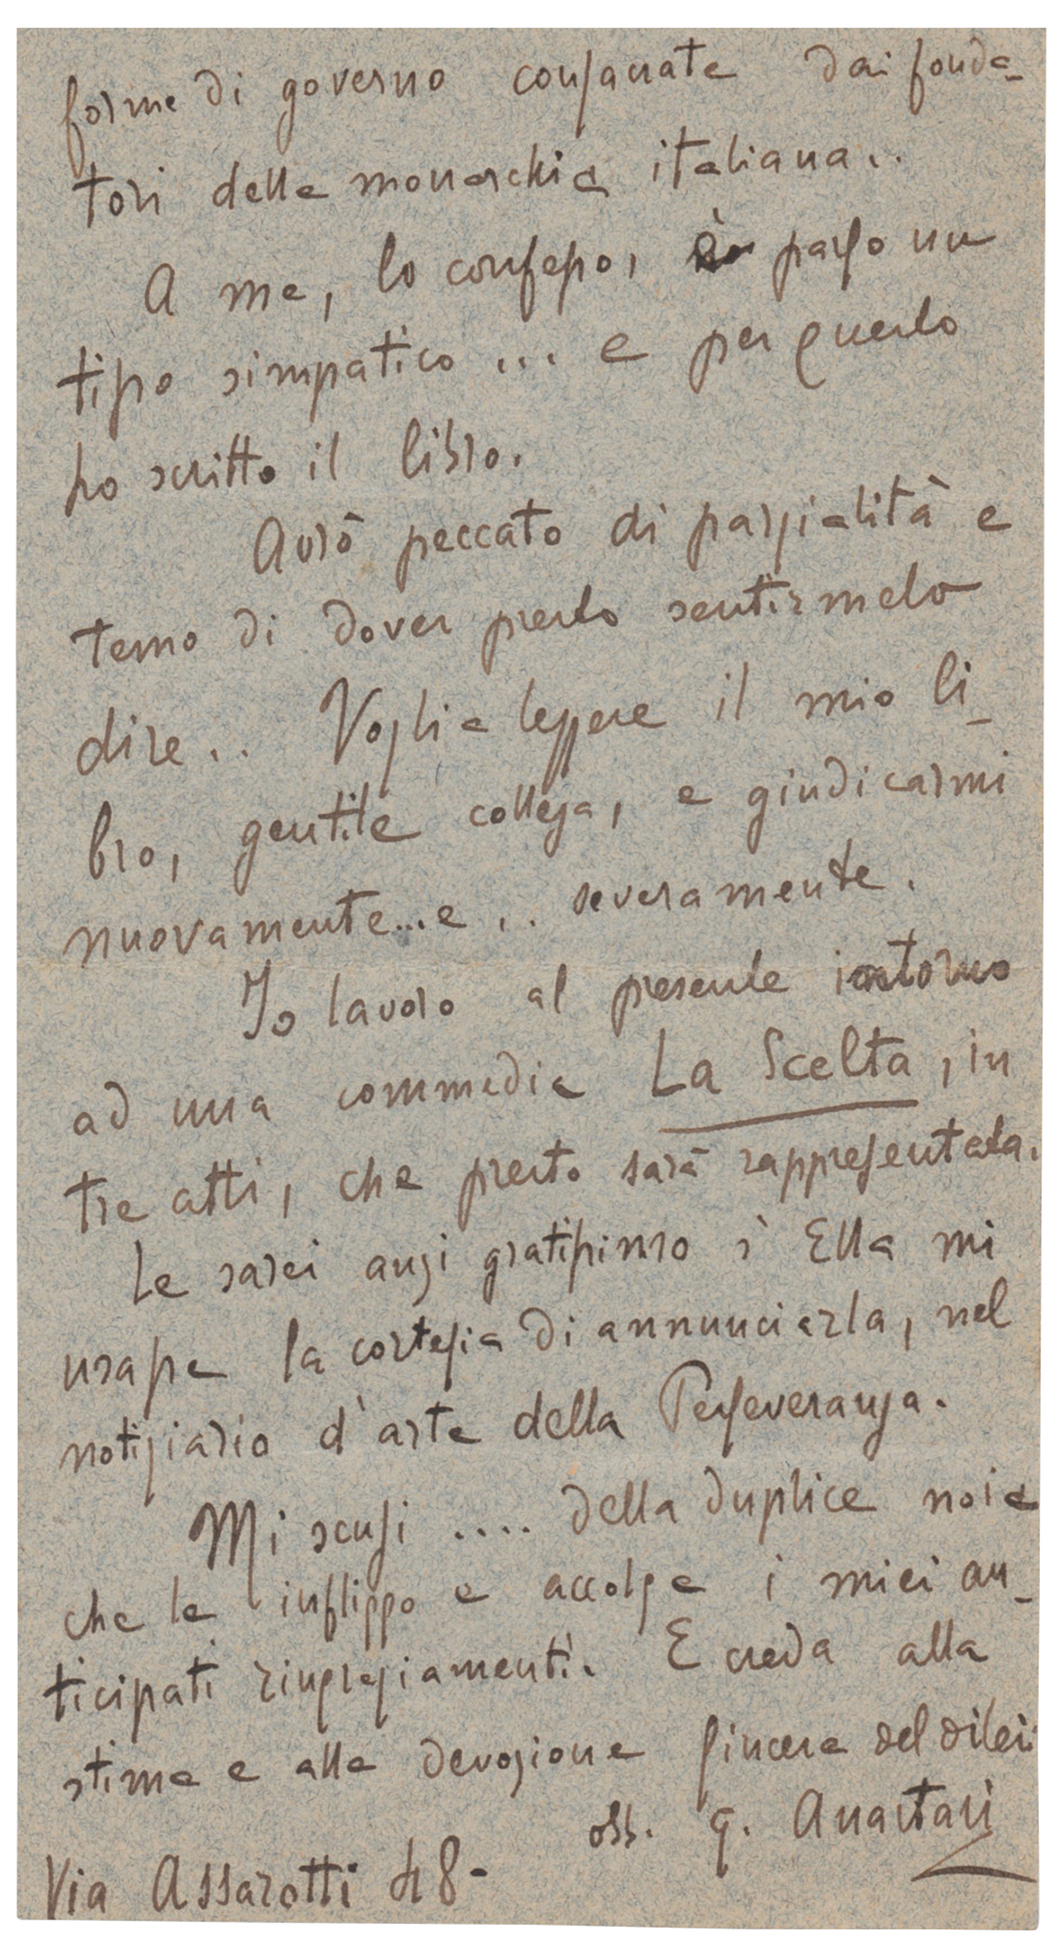 forme di governo consacrate dai fonda-
tori della monarchia italiana..
A me, lo confesso, è parso un
tipo simpatico ... e per questo
ho scritto il libro.
Avrò peccato di parzialità e
temo di dover presto sentirmelo
dire.. Voglia leggere il mio li-
bro, gentile collega, e giudicarmi
nuovamente...e... severamente.
Io lavoro al presente intorno
ad una commedia La Scelta, in
tre atti, che presto sarà rappresentata.
Le sarei anzi gratissimo s' Ella mi
usasse la cortesia di annunciarla, nel
notiziario d'arte della Perseveranza.
Mi scusi .... della duplice noia
che le infliggo e accolga i miei an-
ticipati ringraziamenti. E creda alla
stima e alla devozione sincera del di lei
obb. G. Anastasi
Via Assarotti 48-